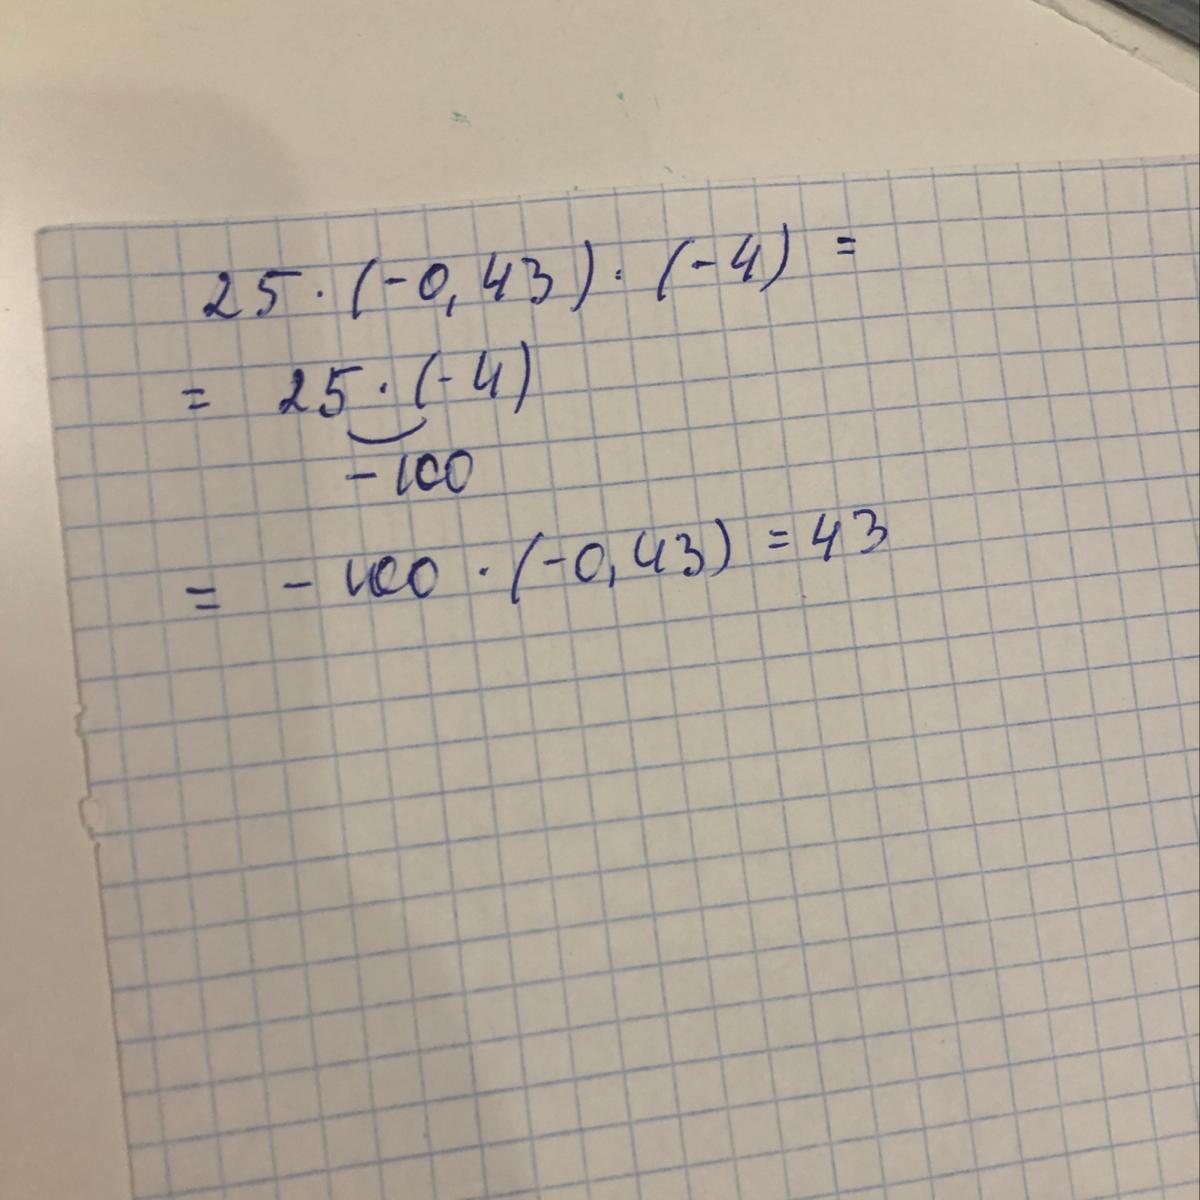 25 · (-0,43) · (-4) =
= 25 · (-4)
-100
= - 100 · (-0,43) = 43